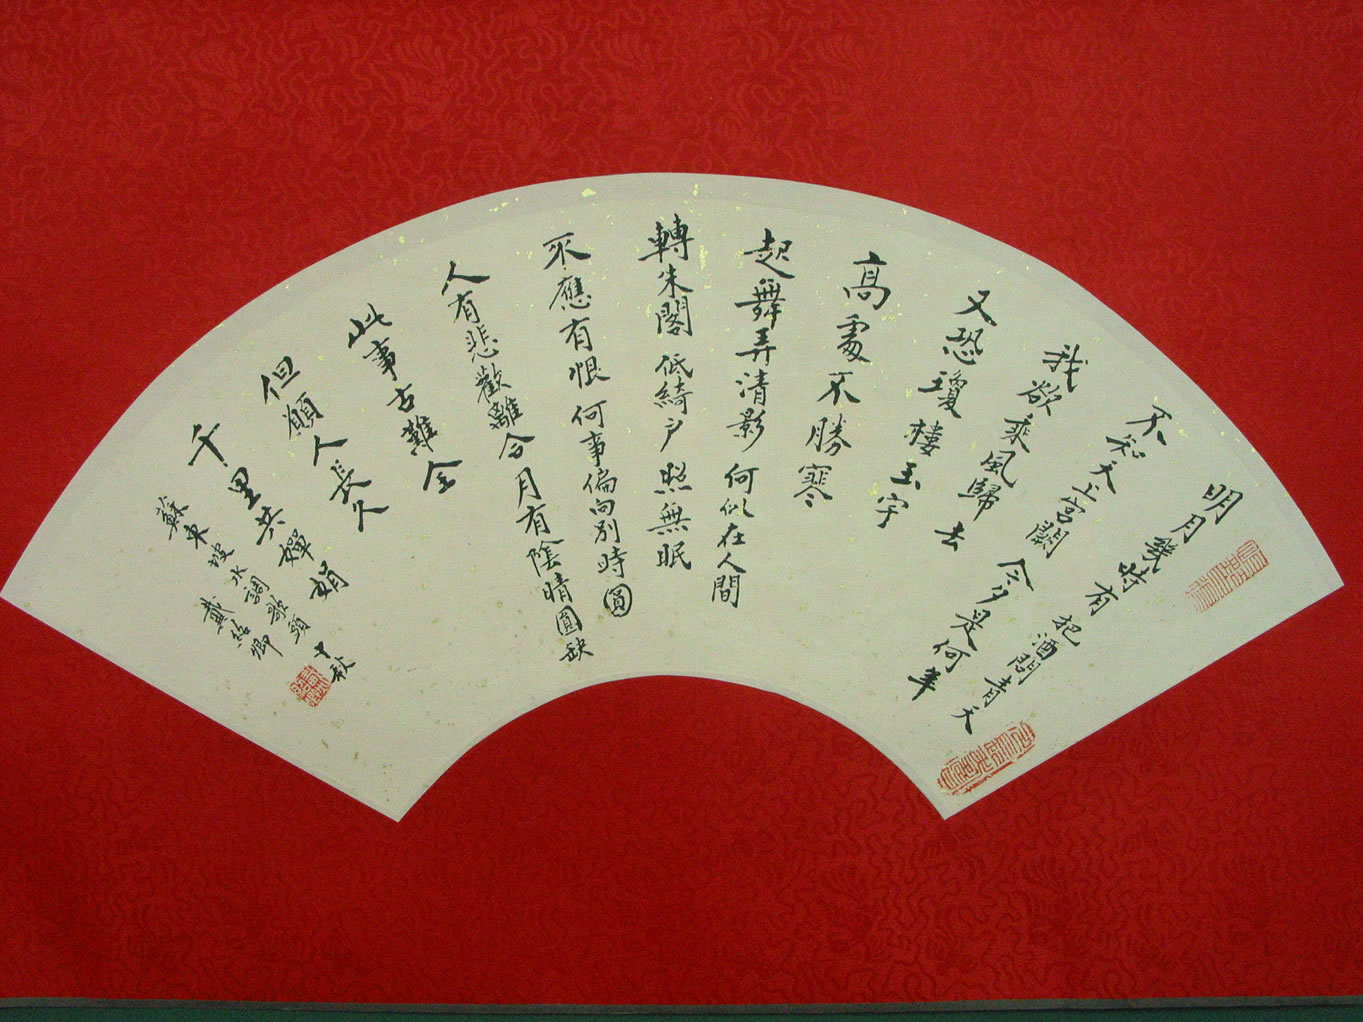 明月幾時有 把酒問青天
不知天上宮闕 今夕是何年
我欲乘風歸去
又恐瓊樓玉宇
高處不勝寒
起舞弄清影 何似在人間
轉朱閣 低綺戶 照無眠
不應有恨 何事偏向別時圓
人有悲歡離合月有陰晴圓缺
此事古難全
但願人長久
千里共嬋娟
蘇東坡水調歌頭 中秋
戴紹卿